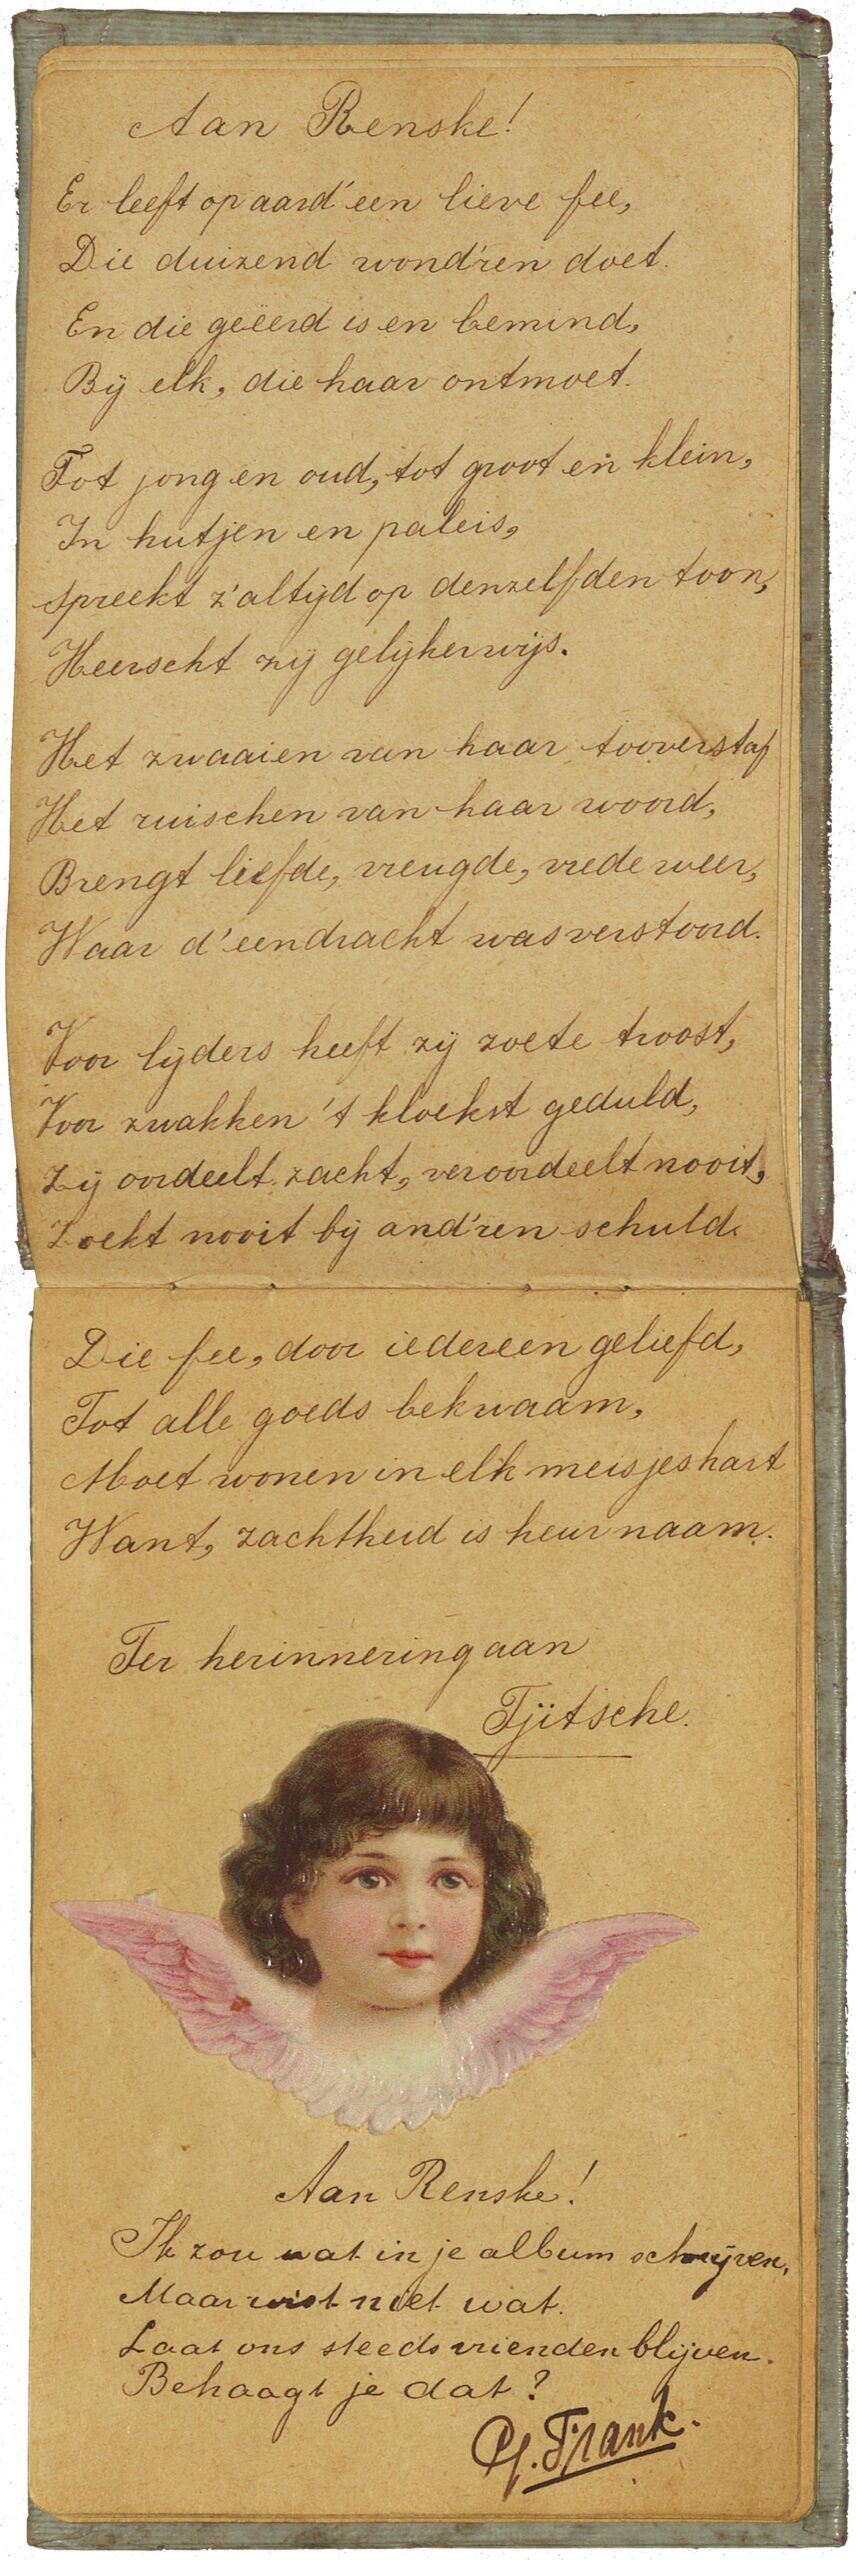 Aan Renske!
Er leeft op aard' een lieve fee,
Die duizend wond'ren doet.
En die geëerd is en bemind,
Bij elk, die haar ontmoet.
Tot jong en oud, tot groot en klein,
In hutjen en paleis,
spreekt z'altijd op denzelfden toon,
Heerscht zij gelijkerwijs.
Het zwaaien van haar tooverstaf
Het ruischen van haar woord,
Brengt liefde, vreugde, vrede weer,
Waar d'eendracht was verstoord.
Voor lijders heeft zij zoete troost,
Voor zwakken 't kloekst geduld,
Zij oordeelt zacht, veroordeelt nooit,
Zoekt nooit bij and'ren schuld.
Die fee, door iedereen geliefd,
Tot alle goeds bekwaam,
Moet wonen in elk meisjeshart
Want, zachtheid is heur naam.
Ter herinnering aan
Tjitsche.
Aan Renske!
Ik zou wat in je album schrijven,
Maar wist niet wat.
Laat ons steeds vrienden blijven.
Behaagt je dat?
Frank.